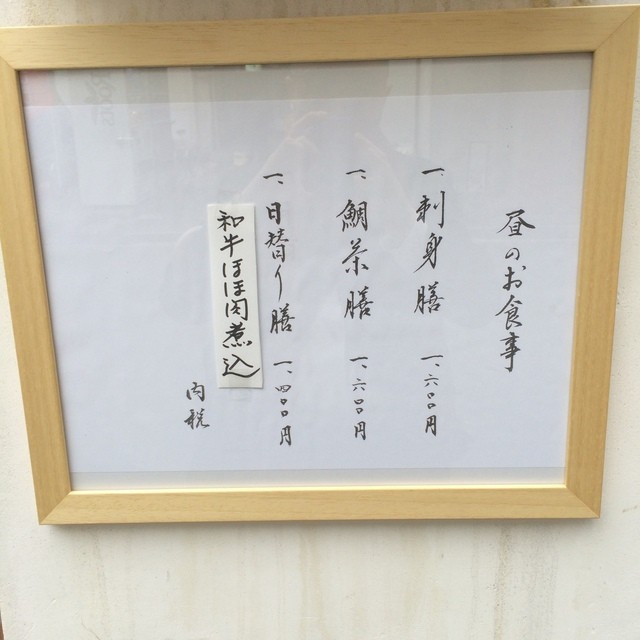 昼のお食事
一、刺身膳 一、六〇〇円
一、鯛茶膳 一、六〇〇円
一、日替り膳 一、四〇〇円
和牛ほほ肉煮込
内税